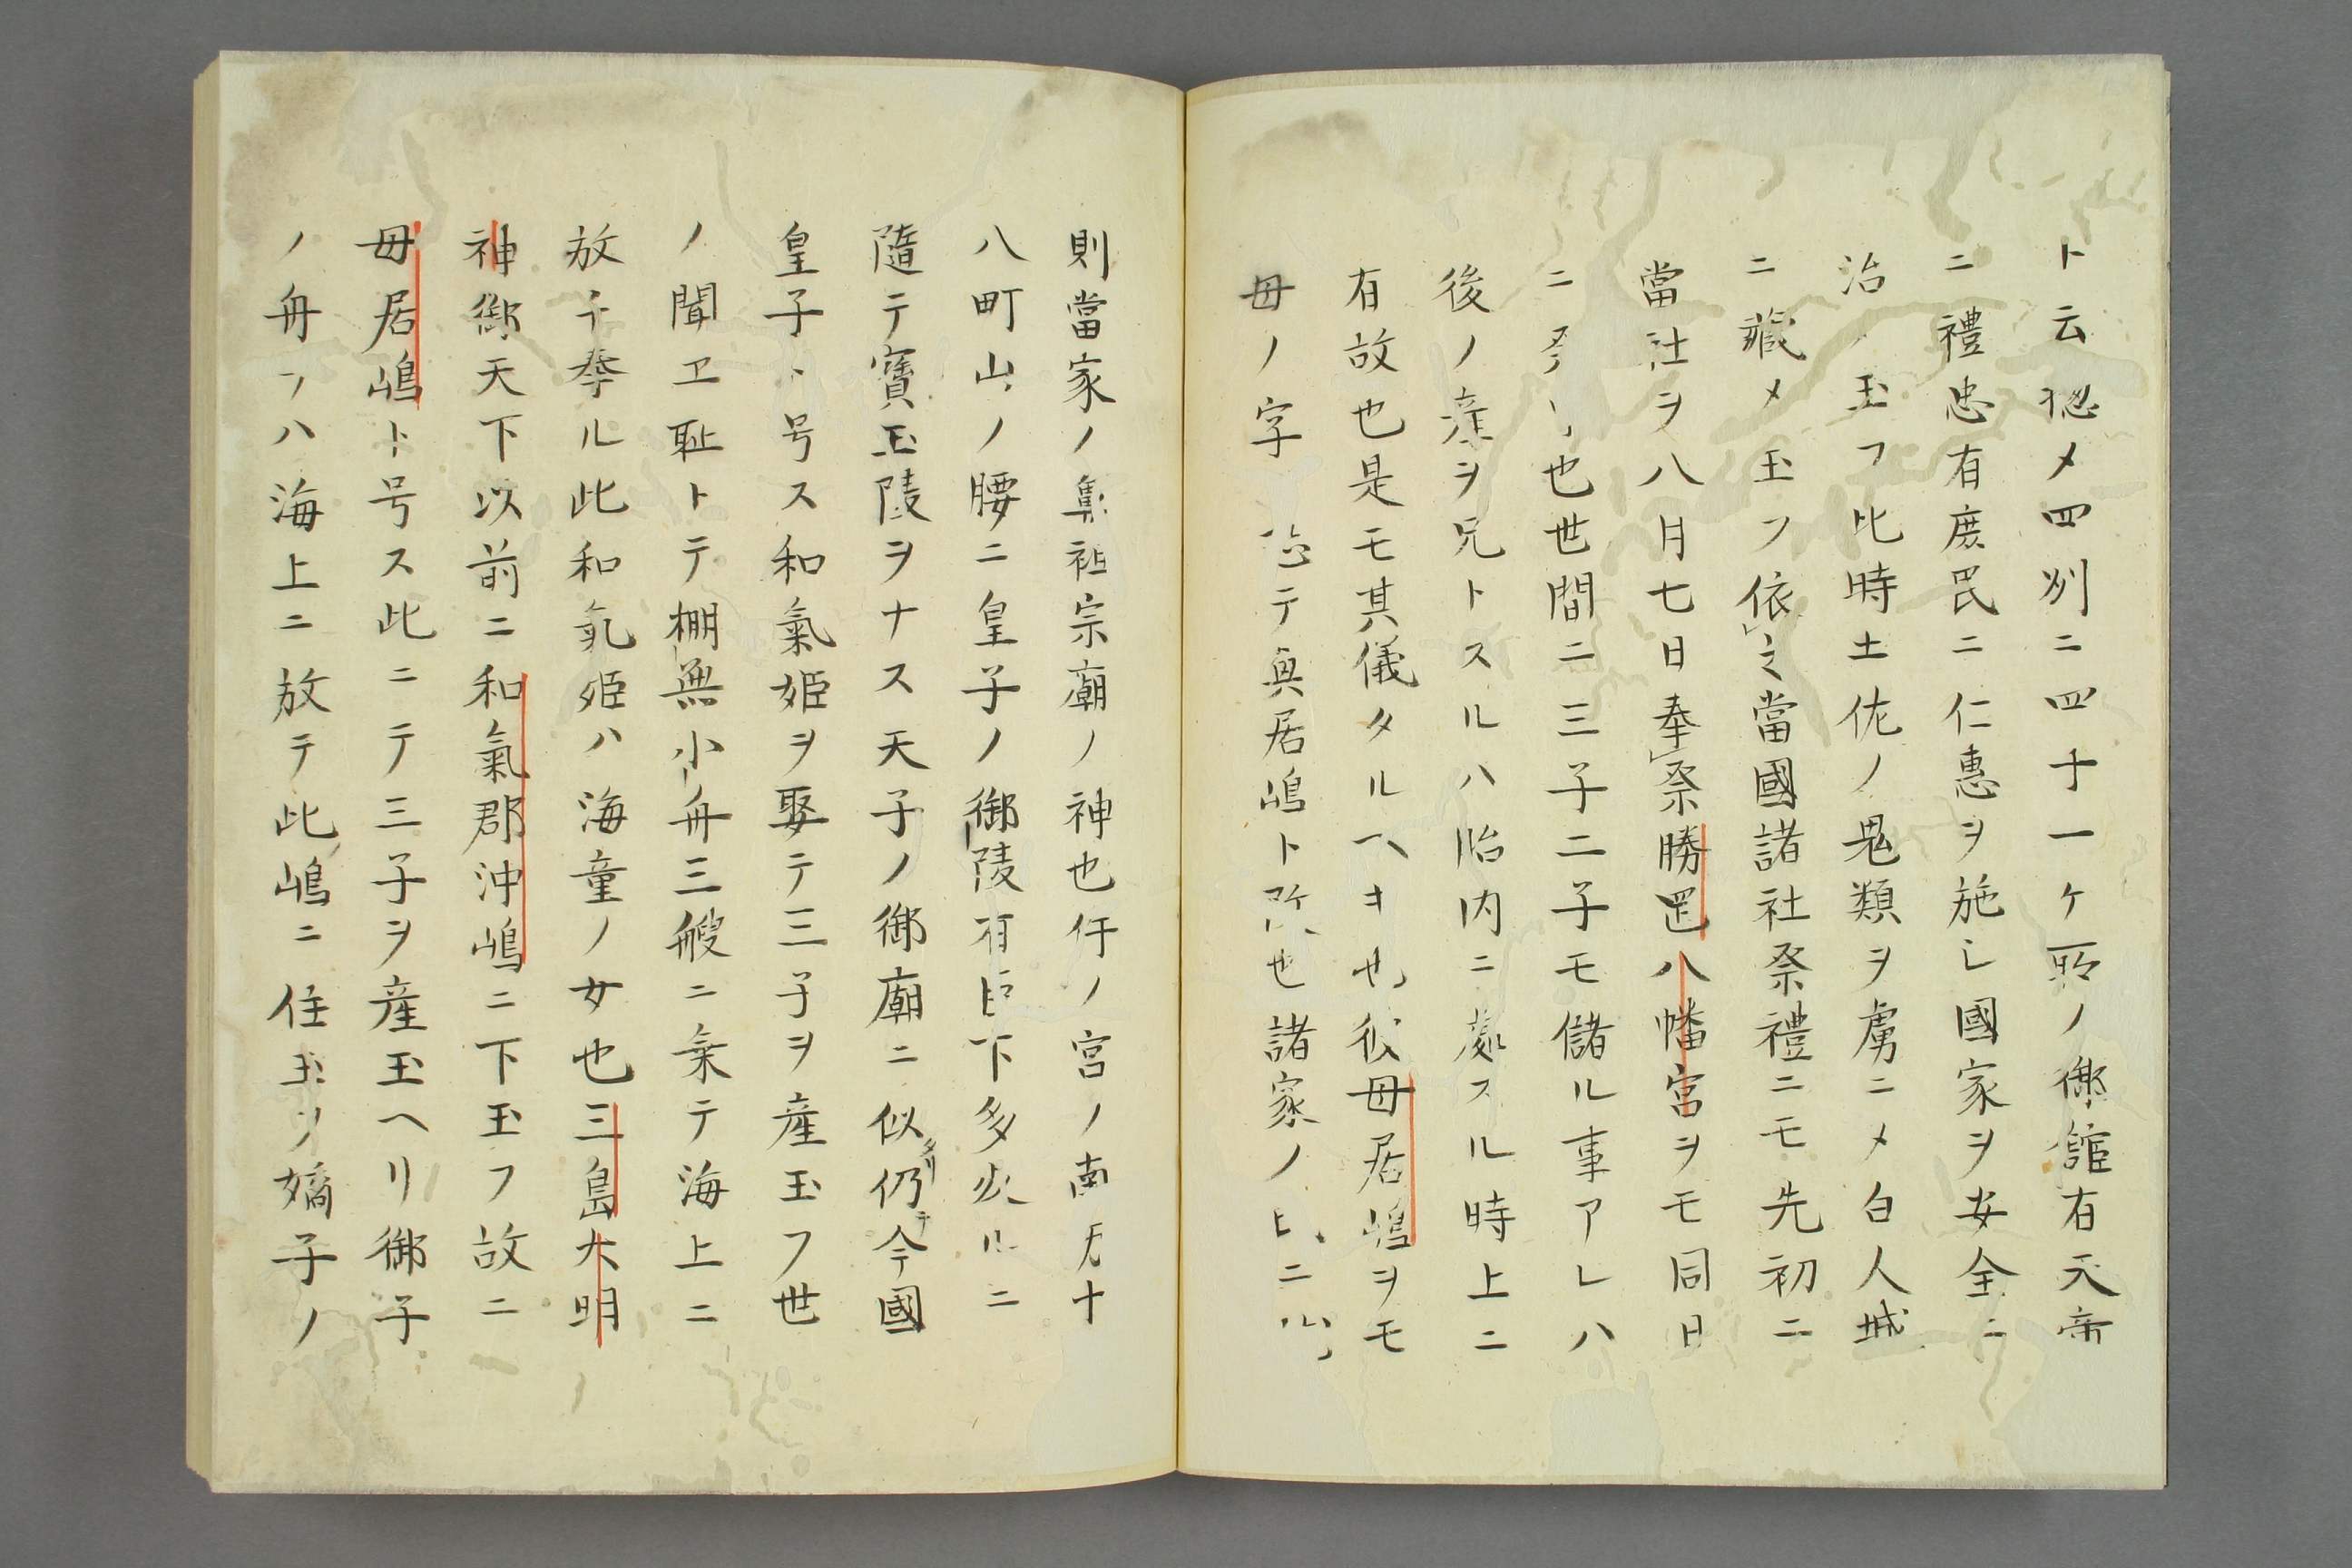 ト云惣メ四刕ニ四十一ケ所ノ御舘有天帝
ニ禮忠有庶民ニ仁惠ヲ施シ國家ヲ安全ニ
治ノ玉フ比時土佐ノ鬼類ヲ虜ニメ白人城
ニ藏メ玉フ依之當國諸社祭禮ニモ先初ニ
當社ヲ八月七日奉祭勝罡八幡宮ヲモ同日
ニ也世間ニ三子二子モ儲ル事アレハ
後ノ産ヲ兄トスルハ胎内ニ處スル時上ニ
有故也是モ其儀タルヘキ也彼母居嶋ヲモ
母ノ字テ與居嶋ト改也諸家ノ
則當家ノ鼻祖宗廟ノ神也仟ノ宮ノ南方十
八町山ノ腰ニ皇子ノ御陵有臣下多ルニ
隨テ寳玉陵ヲナス天子ノ御廟ニ似タリ仍テ今國
皇子ト号ス和氣姫ヲ娶テ三子ヲ産玉フ世
ノ聞エ耻トテ棚無小舟三艘ニ乗テ海上ニ
放チ奉ル此和氣姫ハ海童ノ女也三島大明
神御天下以前ニ和氣郡沖嶋ニ下玉フ故ニ
母居嶋ト号ス此ニテ三子ヲ産玉ヘリ御子
ノ舟ヲハ海上ニ放テ此嶋ニ住玉ソ嫡子ノ